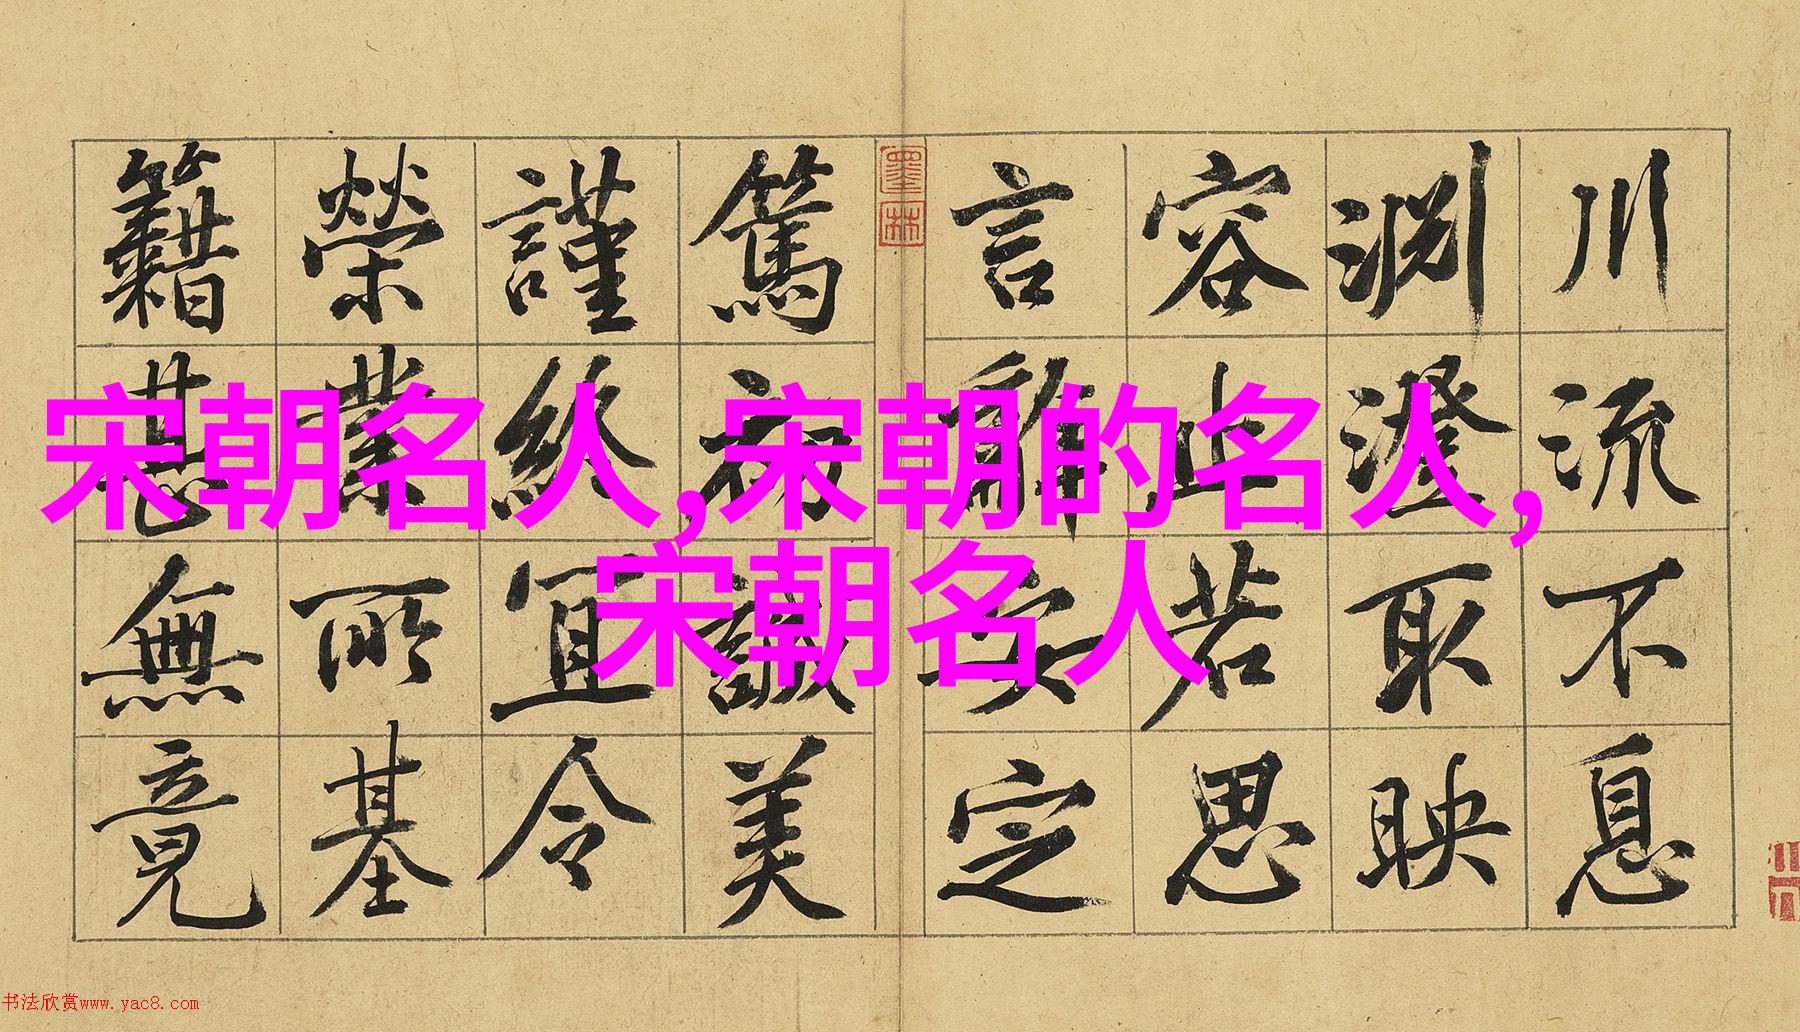 川流不息
淵澄取映
容止若思
言辭安定
墨林
篤初誠美
謹終宜令
榮業所基
籍甚無竟
宋朝名人,宋朝的名人,
宋朝名人
书法欣赏www.yac8.com